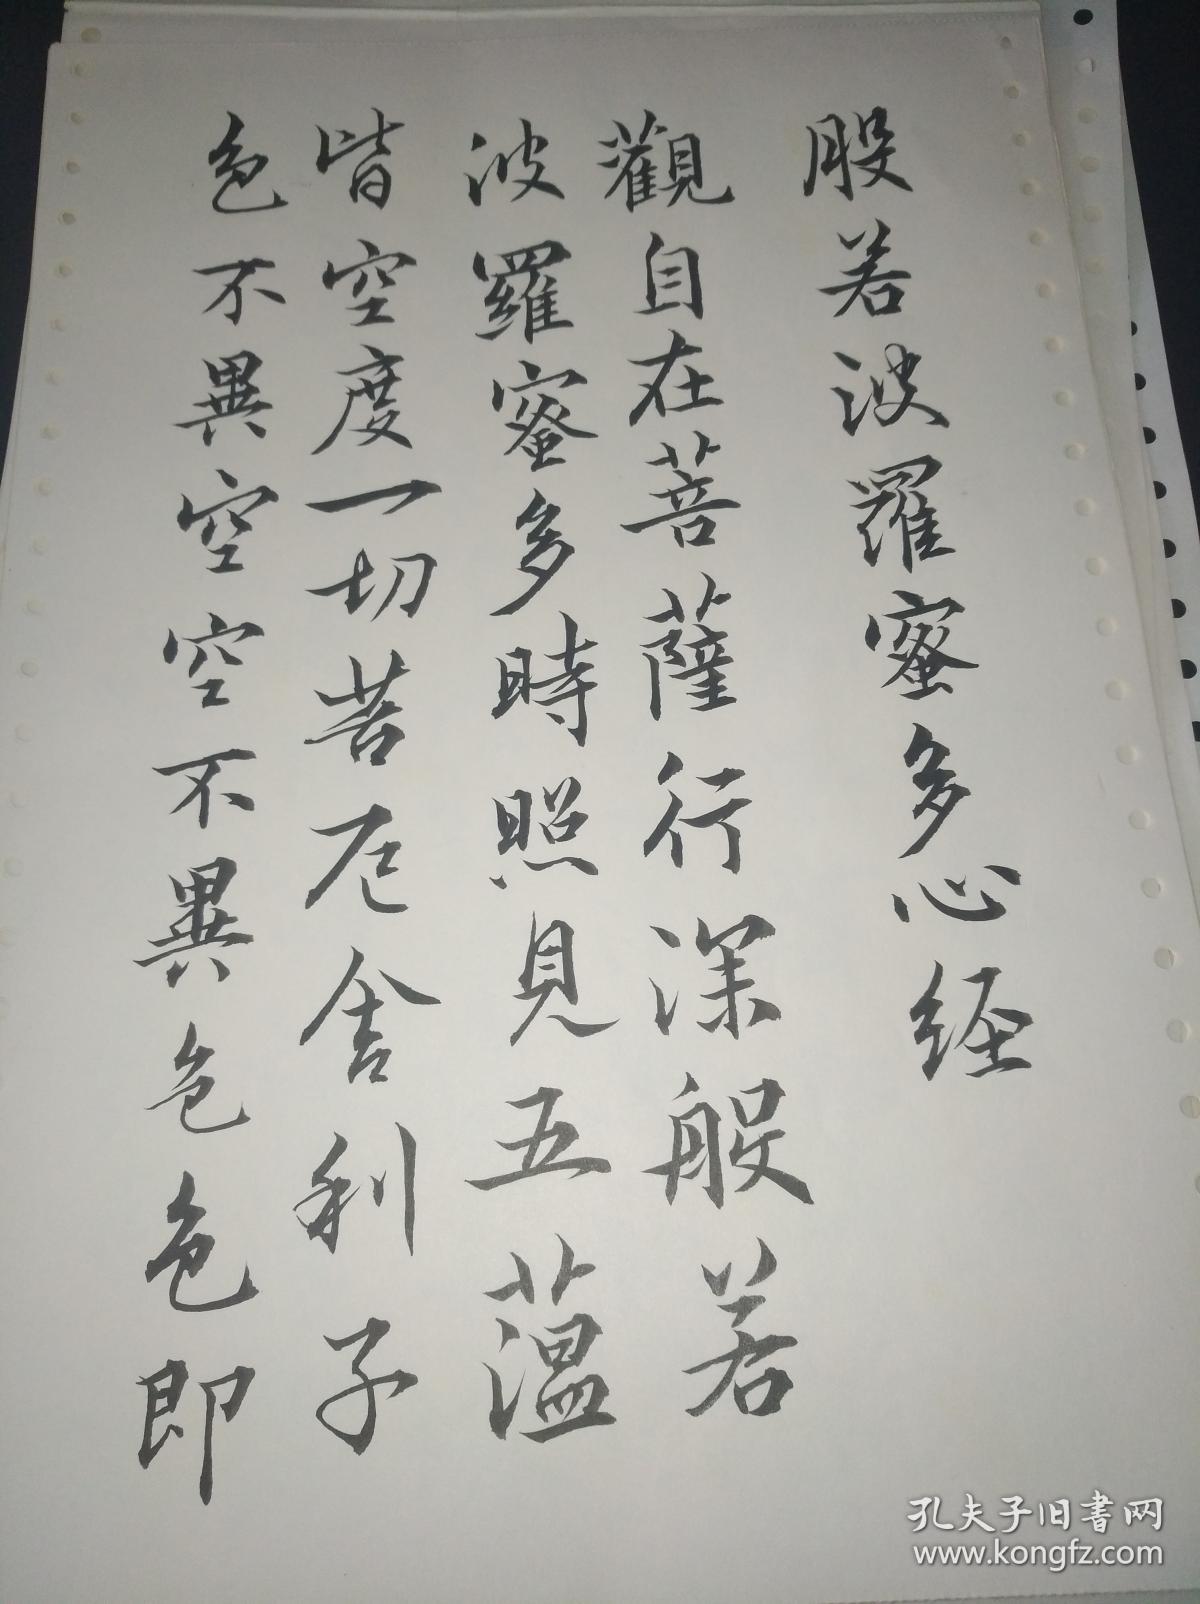 般若波羅蜜多心経
觀自在菩薩行深般若
波羅蜜多時照見五蕰
皆空度一切苦厄舍利子
色不異空空不異色色即
孔夫子旧书网
www.kongfz.com